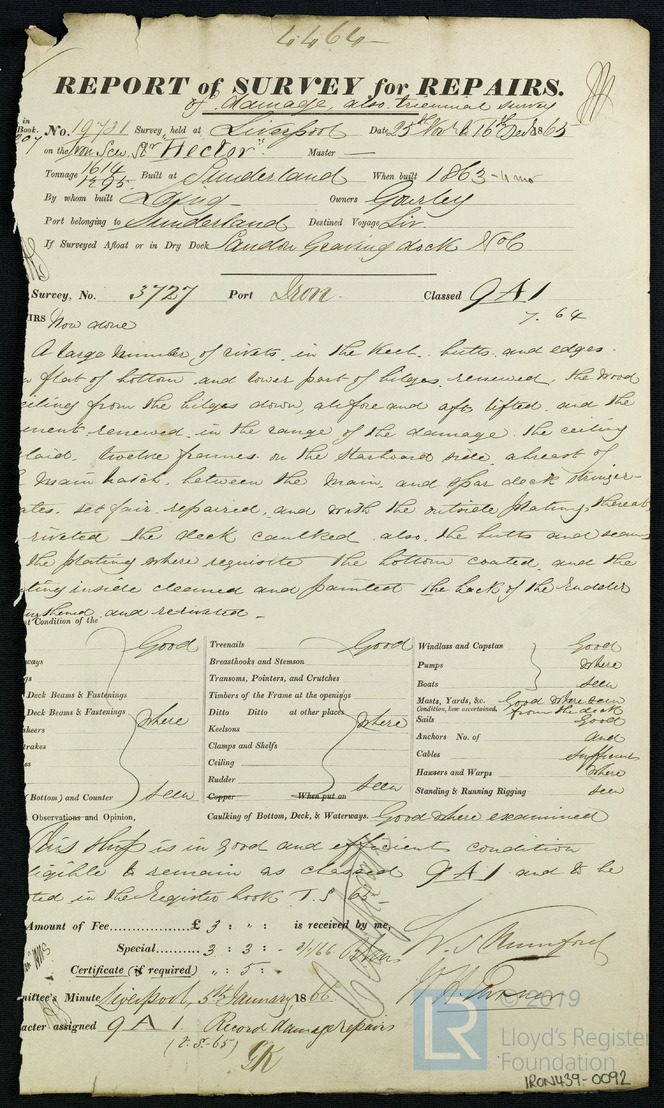 4464
REPORT of SURVEY for REPAIRS.
of damage, also triennial survey
in Book.
No. 19731 Survey held at Liverpool Date 25th Novr & 16th Decr 1865
on the Iron Scw. Str "Hector" Master —
Tonnage 1614 Built at Sunderland When built 1863 - 4 mo
1295
By whom built Laing Owners Gourley
Port belonging to Sunderland Destined Voyage Liv.
If Surveyed Afloat or in Dry Dock Sandon Graving dock No 6
Survey, No. 3727 Port Iron. Classed 9 A 1
7. 64
IRS Now done
A large number of rivets in the keel butts and edges
flat of bottom and lower part of bilges renewed, the wood
ceiling from the bilges down, at fore and aft, lifted and the
ment renewed in the range of the damage the ceiling
laid. twelve frames on the starboard side abreast of
main hatch between the main and spar deck stringer-
ates. set fair repaired, and with the outside plating thereat
riveted the deck caulked also the butts and seams
the plating where requisite the bottom coated, and the
ting inside cleaned and painted the back of the Rudder
gthened and reriveted -
Condition of the
Good
ways
gs
Deck Beams & Fastenings
Deck Beams & Fastenings
where
sheers
trakes
es
(Bottom) and Counter seen
Treenails Good
Breasthooks and Stemson
Transoms, Pointers, and Crutches
Timbers of the Frame at the openings
Ditto Ditto at other places where
Keelsons
Clamps and Shelfs
Ceiling
Rudder seen
Copper When put on
Windlass and Capstan Good
Pumps where
Boats seen
Masts, Yards, &c. Good where seen
Condition, how ascertained, from the deck
Sails Good
Anchors No. of and
Cables sufficient
Hawsers and Warps where
Standing & Running Rigging seen
Observations and Opinion, Caulking of Bottom, Deck, & Waterways. Good where examined
This Ship is in good and efficient condition
ligible to remain as classed 9 A 1 and to be
ted in the Register book T.S 65-
Amount of Fee............... £ 3 : " : is received by me,
Special......... 3 : 3 : - 3/1/66
Certificate (if required) " : 5 : -
mittee's Minute Liverpool, 5th January 1866
acter assigned 9 A 1. Record damage repairs
(t.s-65)
© 2019
LR
Lloyd's Register
Foundation
IRON439-0092